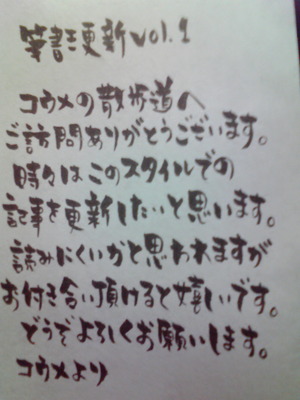 筆書き更新vol.1
コウメの散歩道へ
ご訪問ありがとうございます。
時々はこのスタイルでの
記事を更新したいと思います。
読みにくいかと思われますが
お付き合い頂けると嬉しいです。
どうぞよろしくお願いします。
コウメより